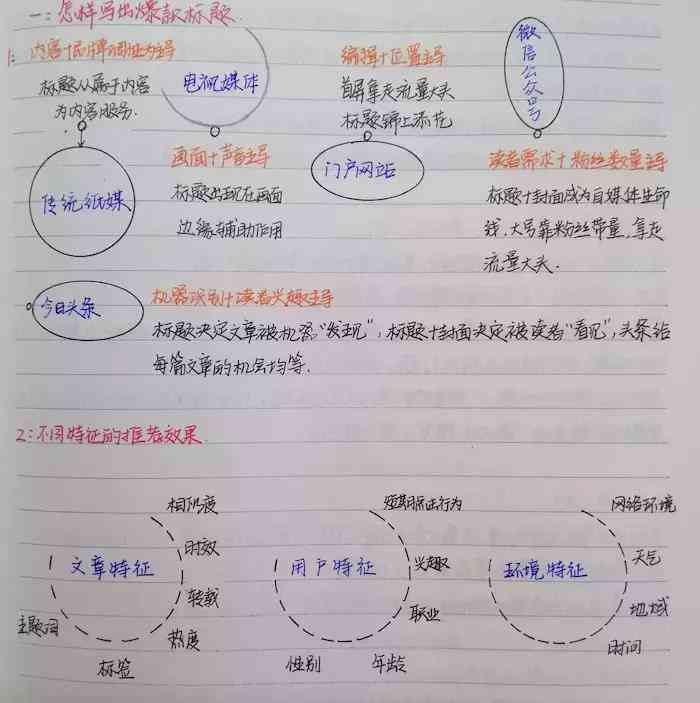 一：怎样写出爆款标题
1：内容+品牌调性为主导
标题从属于内容
为内容服务.
传统纸媒
电视媒体
画面+声音主导
标题出现在画面
边缘辅助作用
编辑+位置主导
首屏拿走流量大头
标题锦上添花
门户网站
微信公众号
读者需求+粉丝数量主导
标题+封面成为自媒体生命
线，大号靠粉丝带量，拿走
流量大头.
今日头条
机器识别+读者兴趣主导
标题决定文章被机器“发现”，标题+封面决定被读者“看见”，头条给
每篇文章的机会均等.
2：不同特征的推荐效果
文章特征
相似度
时效
转载
热度
标签
主题词
用户特征
短期点击行为
兴趣
职业
年龄
性别
环境特征
网络环境
天气
地域
时间